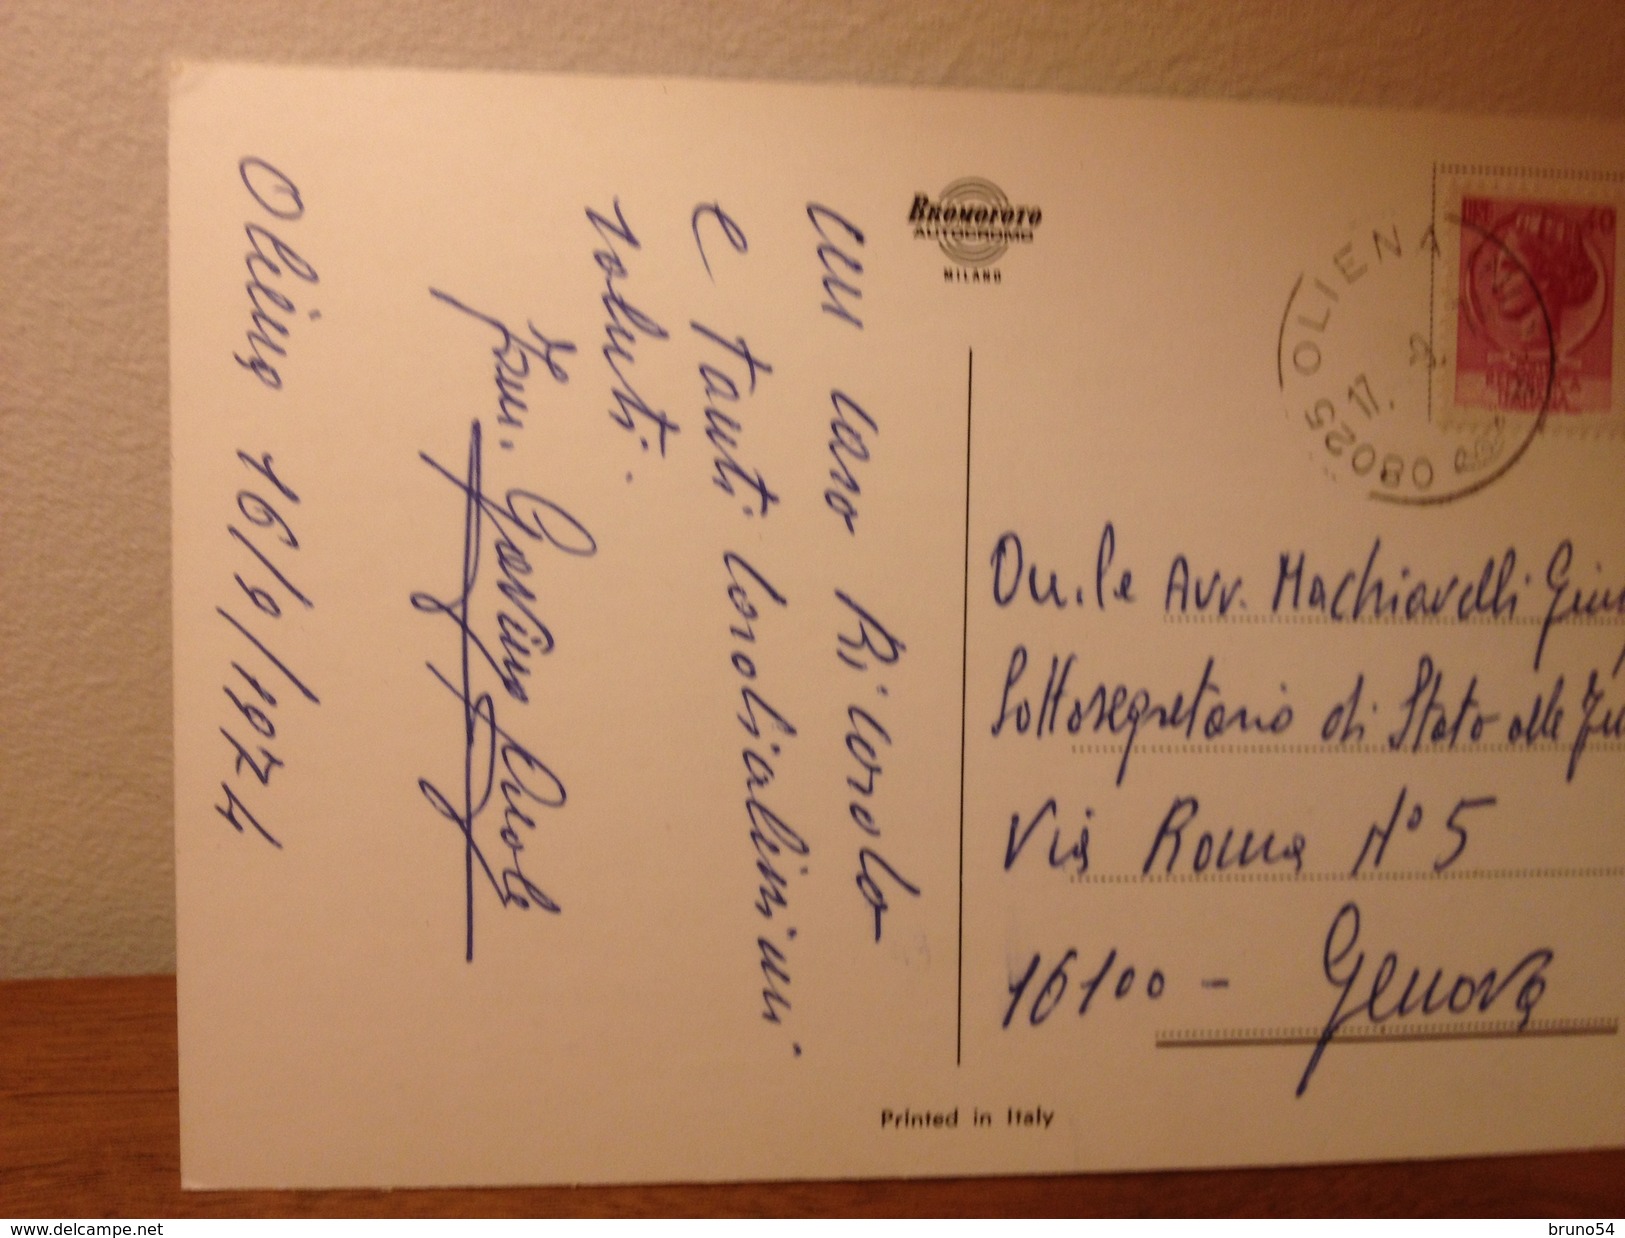 Un caro Ricordo
e tanti cordialissimi
saluti.
Oliena 16/9/1974
BROMOFOTO
AUTOCROMO
MILANO
08025 OLIENA
17.
LIRE 40
REPUBBLICA
ITALIANA
On.le Avv. Machiavelli Giu
Sottosegretario di Stato alle
Via Roma N° 5
16100 - Genova
Printed in Italy
www.delcampe.net
bruno54